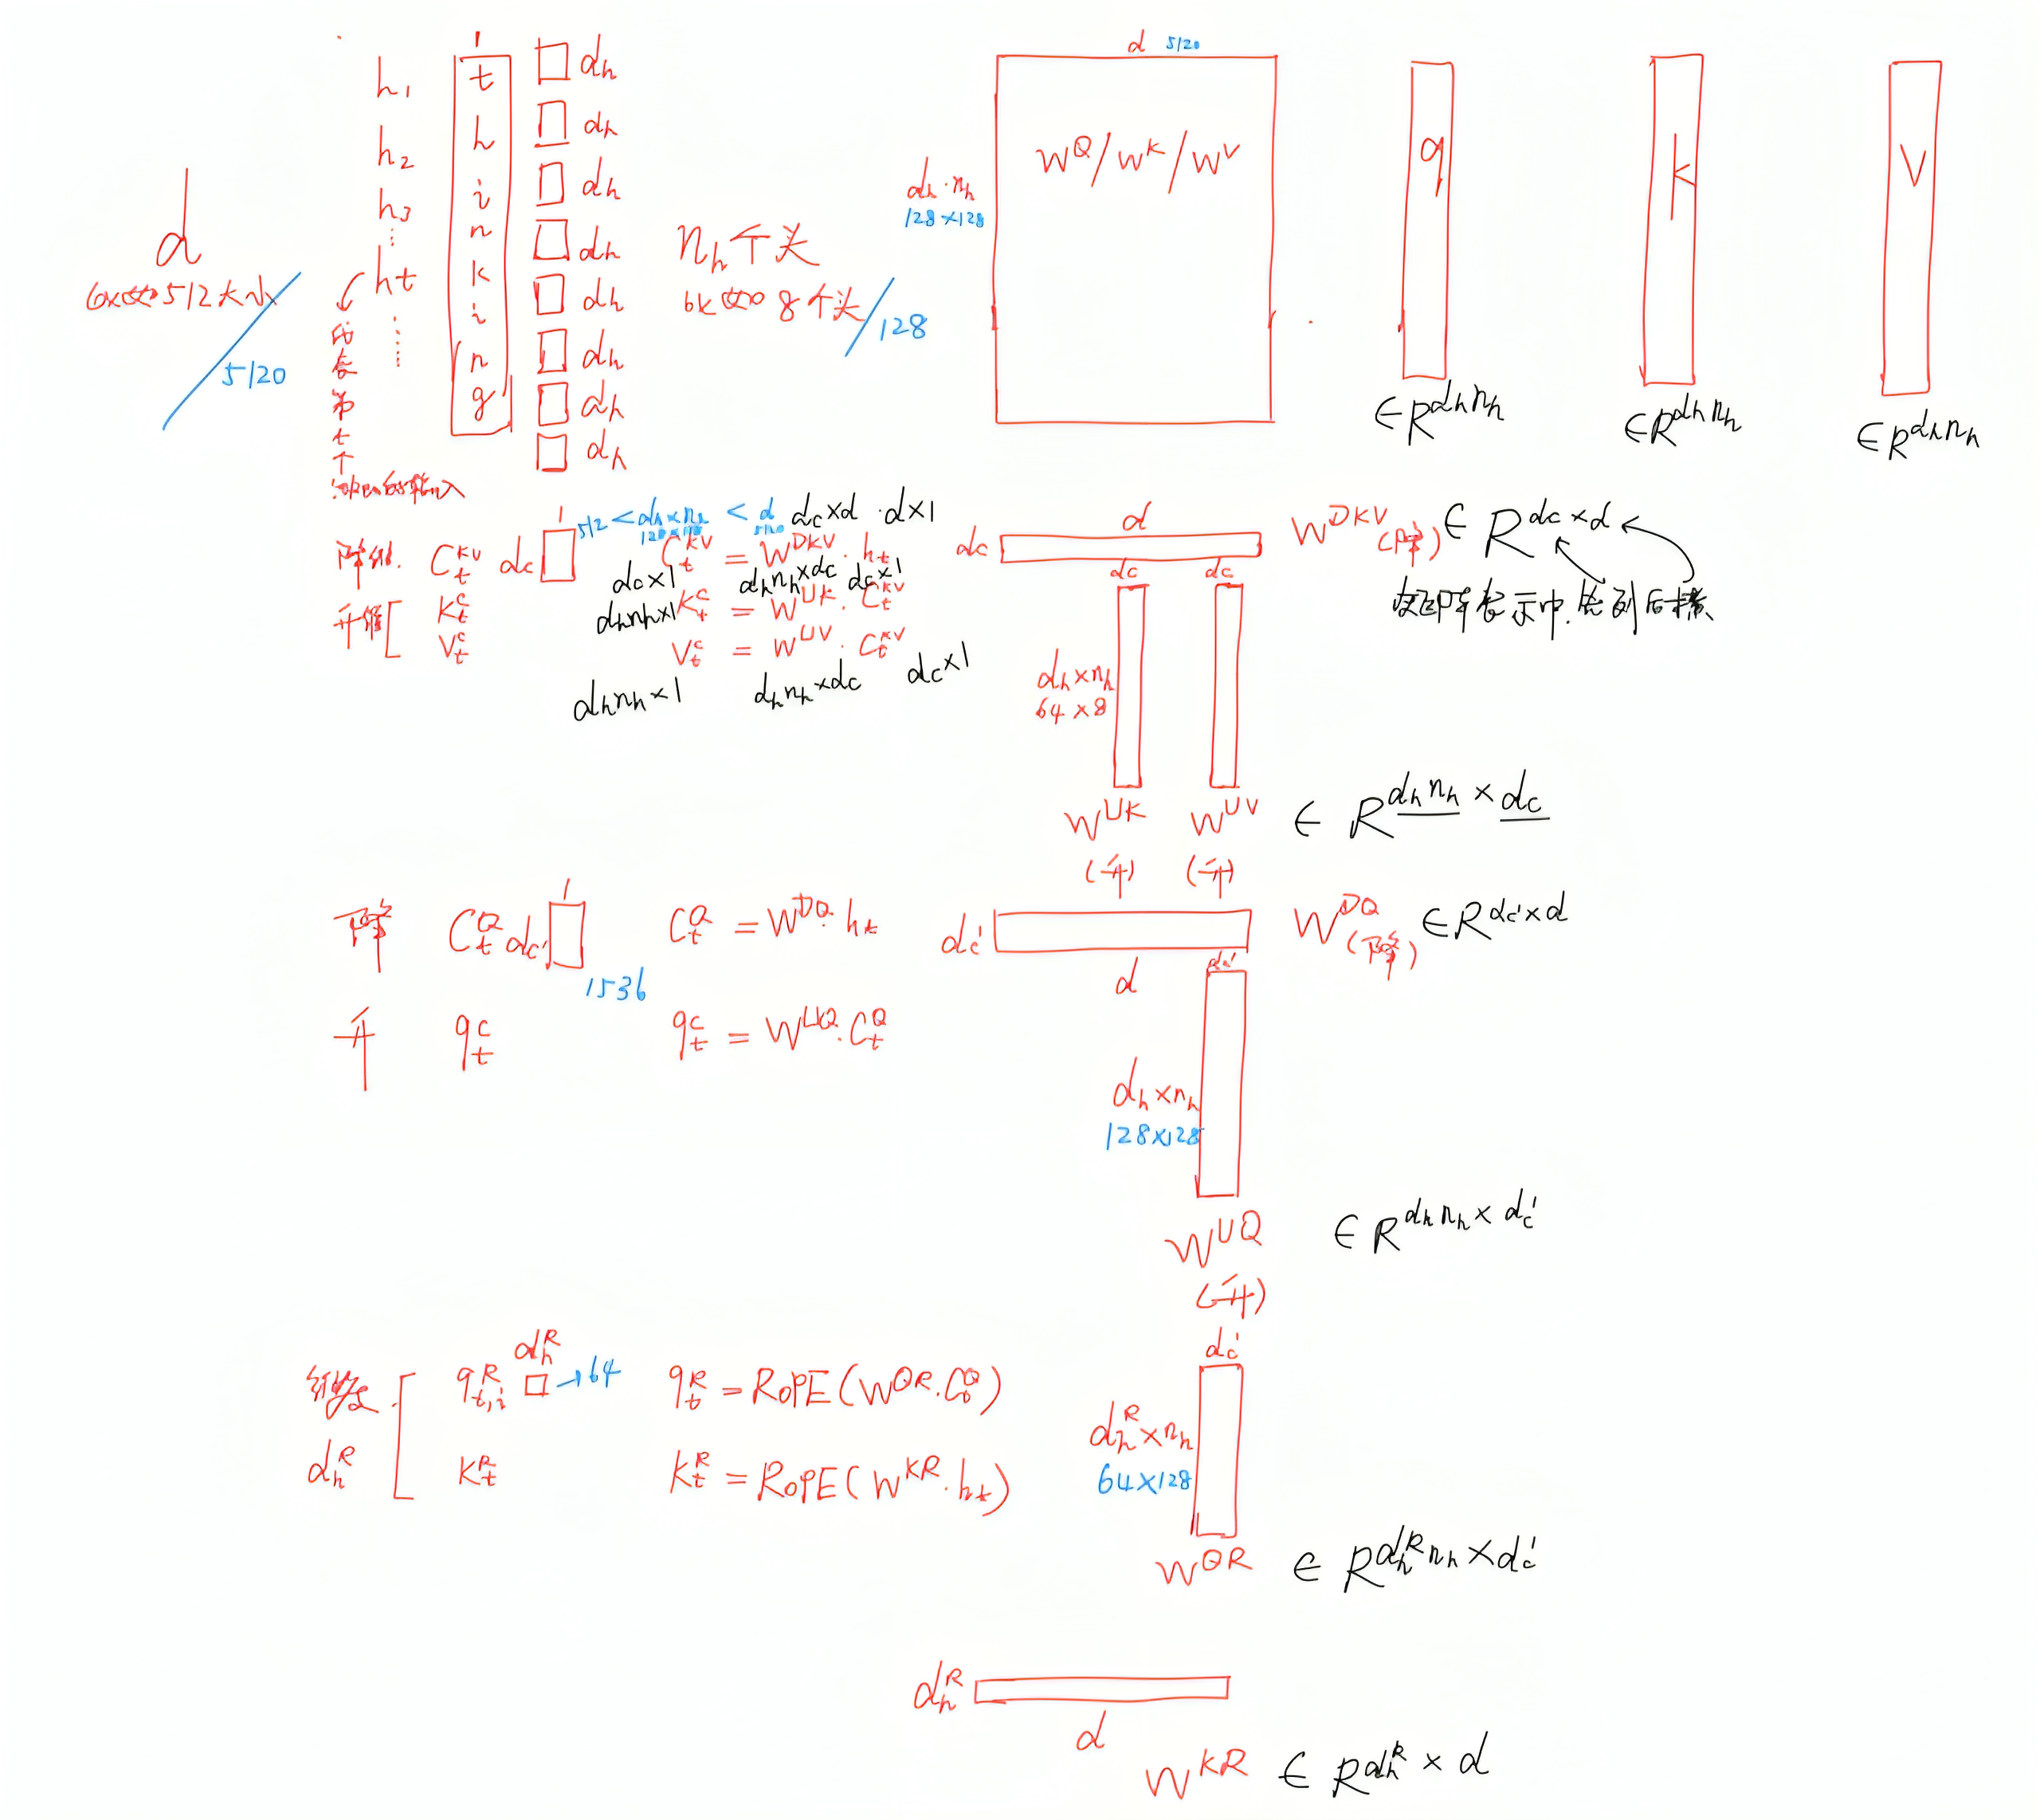 d
512大小
5120
h₁
h₂
h₃
⋮
hₜ
⋮
1
t
h
i
n
k
i
n
g
dₕ
dₕ
dₕ
dₕ
dₕ
dₕ
dₕ
dₕ
第
t
个
输入
nₕ个头
8个头
128
d 5120
dₕ·nₕ
128×128
W^Q/W^K/W^V
q
∈R^{dₕnₕ}
k
∈R^{dₕnₕ}
V
∈R^{dₕnₕ}
降维. C_t^{KV} d_c 1
512 < dₕ×nₕ < d
128×128 5120
d_c×d · d×1
C_t^{KV} = W^{DKV}·h_t
d_c×1 dₕnₕ×d_c d_c×1
升维 [ K_t^C
V_t^C
dₕnₕ×1 K_t^C = W^{UK}·C_t^{KV}
V_t^C = W^{UV}·C_t^{KV}
dₕnₕ×1 dₕnₕ×d_c d_c×1
d
d_c
W^{DKV}(降) ∈ R^{d_c×d}
矩阵表示中.先列后横
d_c d_c
dₕ×nₕ
64×8
W^{UK} W^{UV} ∈ R^{dₕnₕ×d_c}
(升) (升)
降 C_t^Q d_c' 1
1536
C_t^Q = W^{DQ}·h_t
d_c'
d
W^{DQ}(降) ∈R^{d_c'×d}
升 q_t^C
q_t^C = W^{UQ}·C_t^Q
d_c'
dₕ×nₕ
128×128
W^{UQ} ∈R^{dₕnₕ×d_c'}
(升)
dₕ^R
dₕ^R [ q_{t,i}^R →64
K_t^R
q_t^R = RoPE(W^{QR}·C_t^Q)
K_t^R = RoPE(W^{KR}·h_t)
d_c'
dₕ^R×nₕ
64×128
W^{QR} ∈ R^{dₕ^R nₕ×d_c'}
dₕ^R
d
W^{KR} ∈ R^{dₕ^R×d}